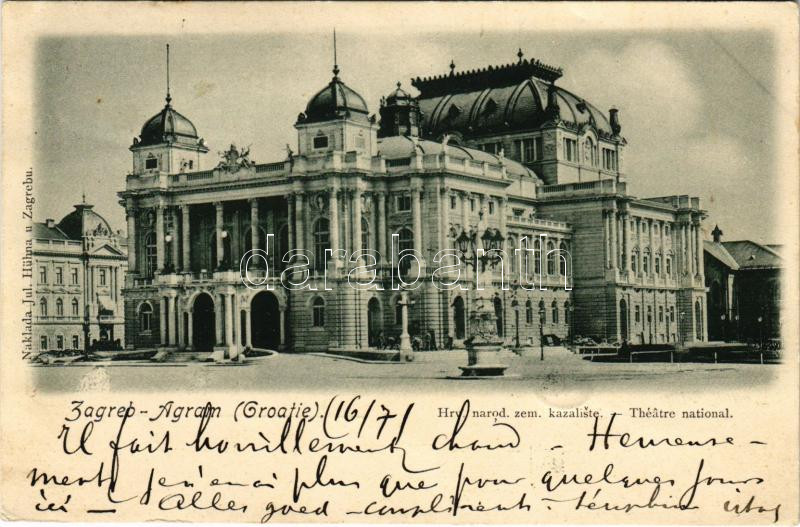 Naklada Jul. Hühna u Zagrebu.
darabanth
Zagreb-Agram (Croatie). (16/7) Hrv. narod. zem. kazalište. - Théâtre national.
Il fait horriblement chaud - Heureuse-
ment j'en ai plus que pour quelques jours
ici - Alles goed - compliments -